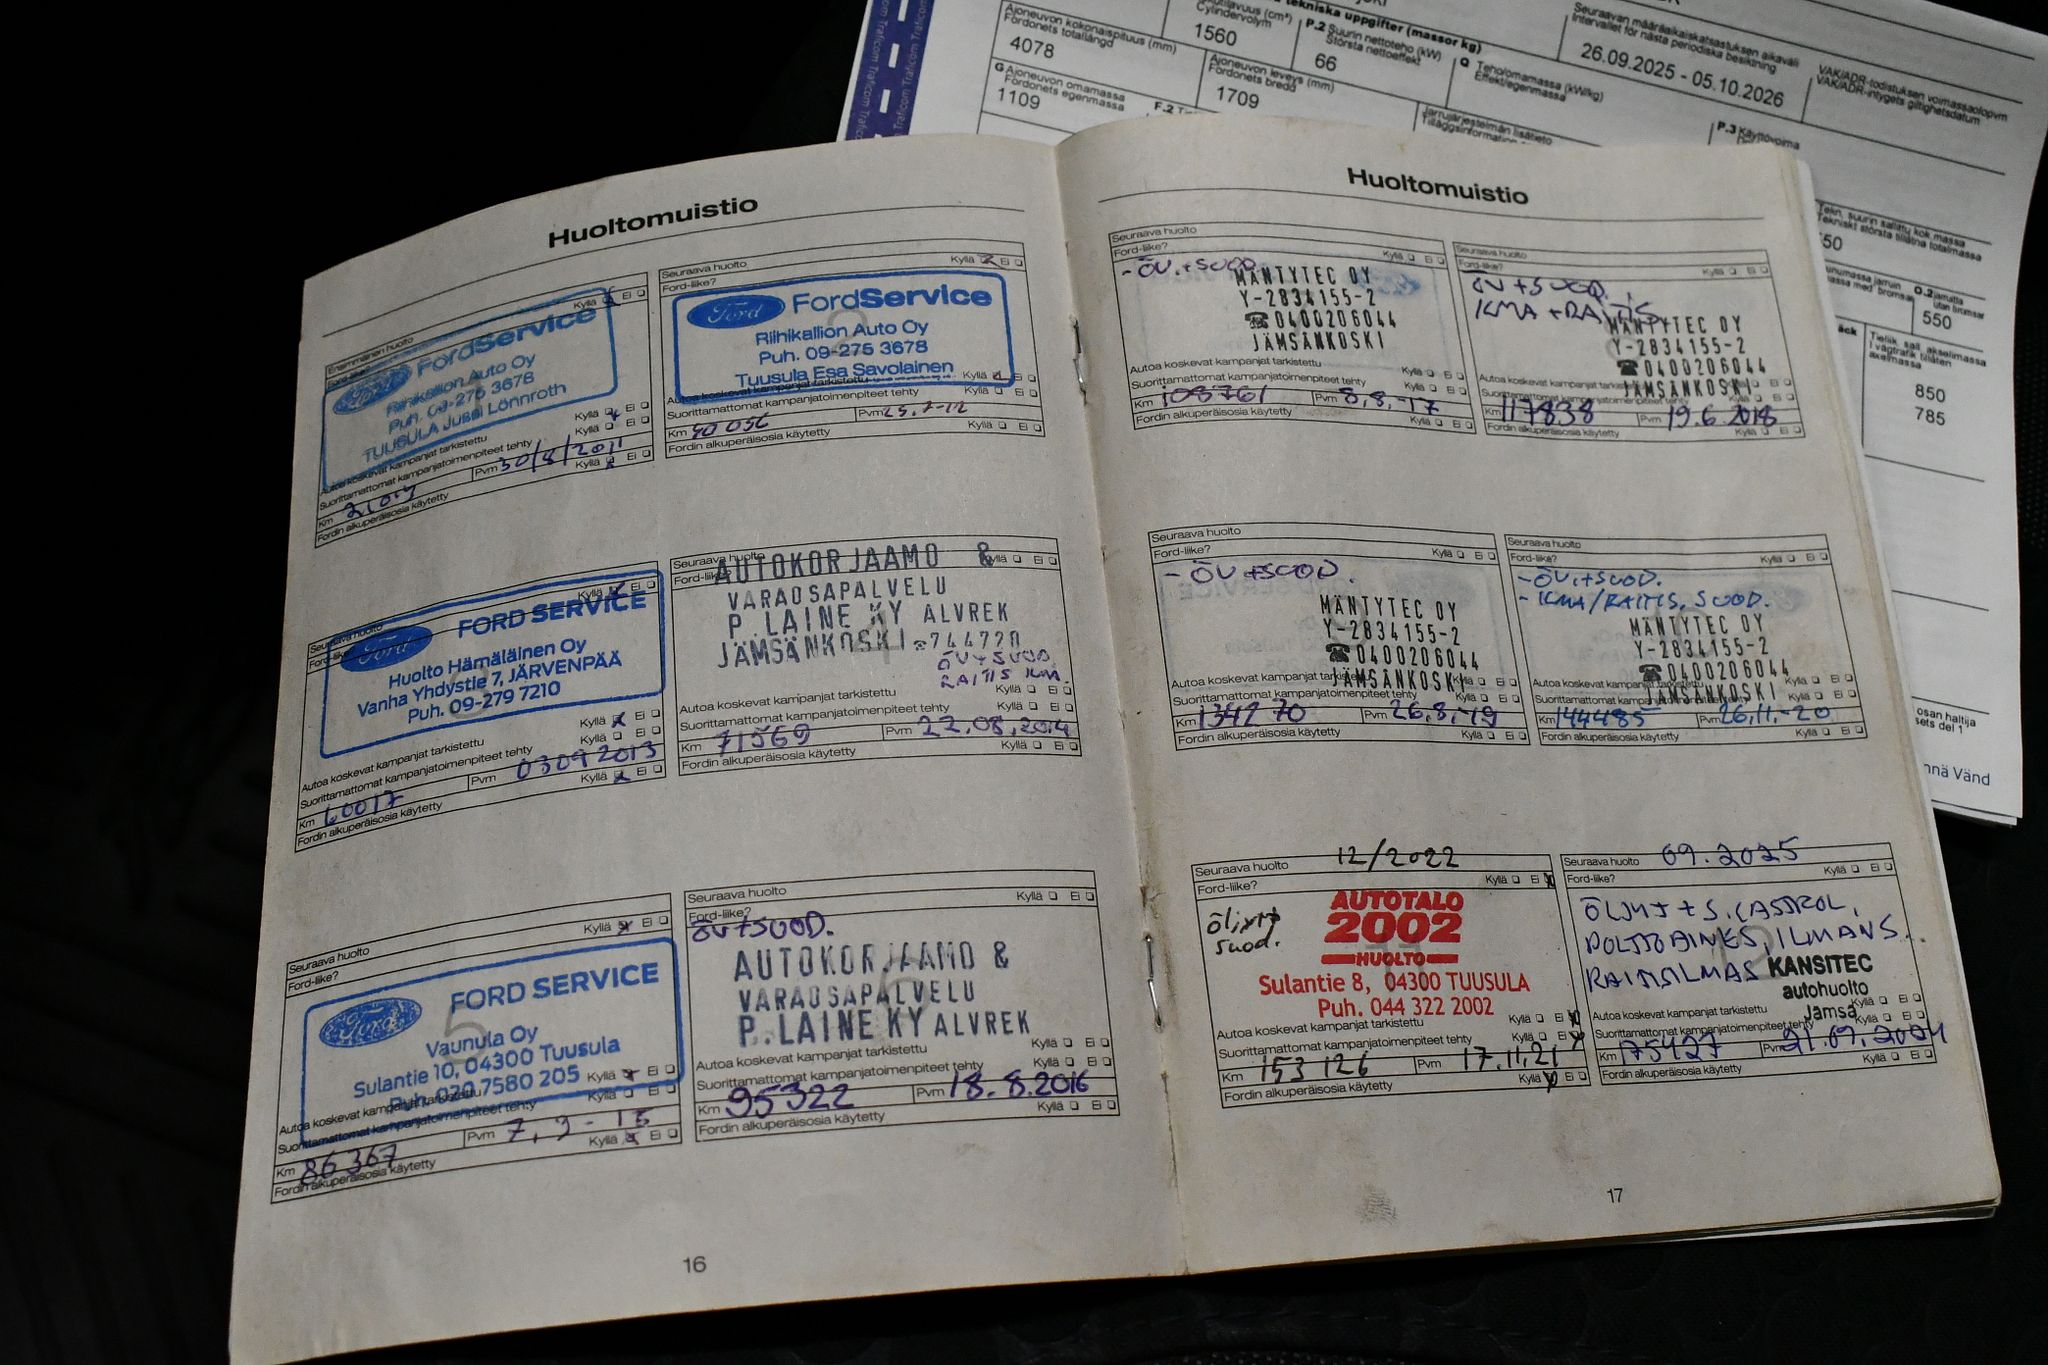 Traficom Traficom Traficom Traficom
Ajoneuvon kokonaispituus (mm)
Fordonets totallängd
4078
Cylindervolym
1560
tekniska uppgifter (massor kg)
P.2 Suurin nettoteho (kW)
Största nettoeffekt
66
Seuraavan määräaikaiskatsastuksen aikaväli
Intervallet för nästa periodiska besiktning
26.09.2025 - 05.10.2026
VAK/ADR-todistuksen voimassaolopvm
VAK/ADR-intygets giltighetsdatum
G Ajoneuvon omamassa
Fordonets egenmassa
1109
Ajoneuvon leveys (mm)
Fordonets bredd
1709
Q Teho/omamassa (kW/kg)
Effekt/egenmassa
Jarrujärjestelmän lisätieto
P.3 Käyttövoima
Tekn. suurin sallittu kok.massa
Tekniskt största tillåtna totalmassa
O.2 jarrutta
utan bromsar
550
Tieliik. sall. akselimassa
I vägtrafik tillåten
axelmassa
850
785
osan haltija
nnä Vänd
Huoltomuistio
Ensimmäinen huolto
Ford-liike?
Kyllä Ei
FordService
Riihikallion Auto Oy
Puh. 09-275 3678
TUUSULA Jussi Lönnroth
Autoa koskevat kampanjat tarkistettu Kyllä Ei
Suorittamattomat kampanjatoimenpiteet tehty Kyllä Ei
Km Pvm 30/8/2011
Fordin alkuperäisosia käytetty Kyllä Ei
Seuraava huolto
Ford-liike? Kyllä Ei
FordService
Riihikallion Auto Oy
Puh. 09-275 3678
Tuusula Esa Savolainen
Autoa koskevat kampanjat tarkistettu Kyllä Ei
Suorittamattomat kampanjatoimenpiteet tehty
Km 40056 Pvm 25.7-12
Fordin alkuperäisosia käytetty Kyllä Ei
Seuraava huolto
Ford-liike? Kyllä Ei
FORD SERVICE
Huolto Hämäläinen Oy
Vanha Yhdystie 7, JÄRVENPÄÄ
Puh. 09-279 7210
Autoa koskevat kampanjat tarkistettu Kyllä Ei
Suorittamattomat kampanjatoimenpiteet tehty Kyllä Ei
Km 60017 Pvm 03092013
Fordin alkuperäisosia käytetty Kyllä Ei
Seuraava huolto
Ford-liike? Kyllä Ei
AUTOKORJAAMO &
VARAOSAPALVELU
P. LAINE KY ALVREK
JÄMSÄNKOSKI ☎744720
ÖV+SUOD.
RAITIS ILM.
Autoa koskevat kampanjat tarkistettu Kyllä Ei
Suorittamattomat kampanjatoimenpiteet tehty Kyllä Ei
Km 71569 Pvm 22.08.2014
Fordin alkuperäisosia käytetty Kyllä Ei
Seuraava huolto
Ford-liike? Kyllä Ei
FORD SERVICE
Vaunula Oy
Sulantie 10, 04300 Tuusula
Puh. 020 7580 205
Autoa koskevat kampanjat tarkistettu Kyllä Ei
Suorittamattomat kampanjatoimenpiteet tehty
Km 86367 Pvm 7.9-15
Fordin alkuperäisosia käytetty Kyllä Ei
Seuraava huolto
Ford-liike? Kyllä Ei
ÖV+SUOD.
AUTOKORJAAMO &
VARAOSAPALVELU
P. LAINE KY ALVREK
Autoa koskevat kampanjat tarkistettu Kyllä Ei
Suorittamattomat kampanjatoimenpiteet tehty Kyllä Ei
Km 95322 Pvm 18.8.2016
Fordin alkuperäisosia käytetty Kyllä Ei
16
Huoltomuistio
Seuraava huolto
Ford-liike? Kyllä Ei
- ÖV.+SUOD.
MÄNTYTEC OY
Y-2834155-2
☎0400206044
JÄMSÄNKOSKI
Autoa koskevat kampanjat tarkistettu Kyllä Ei
Suorittamattomat kampanjatoimenpiteet tehty Kyllä Ei
Km 108761 Pvm 8.8.-17
Fordin alkuperäisosia käytetty Kyllä Ei
Seuraava huolto
Ford-liike? Kyllä Ei
ÖV+SUOD.
ILMA+RAITIS
MÄNTYTEC OY
Y-2834155-2
☎0400206044
JÄMSÄNKOSKI
Autoa koskevat kampanjat tarkistettu
Suorittamattomat kampanjatoimenpiteet tehty
Km 117838 Pvm 19.6.2018
Fordin alkuperäisosia käytetty Kyllä Ei
Seuraava huolto
Ford-liike? Kyllä Ei
- ÖV+SUOD.
MÄNTYTEC OY
Y-2834155-2
☎0400206044
JÄMSÄNKOSKI
Autoa koskevat kampanjat tarkistettu Kyllä Ei
Suorittamattomat kampanjatoimenpiteet tehty Kyllä Ei
Km 134270 Pvm 26.8.-19
Fordin alkuperäisosia käytetty Kyllä Ei
Seuraava huolto
Ford-liike? Kyllä Ei
- ÖV.+SUOD.
- ILMA/RAITIS. SUOD.
MÄNTYTEC OY
Y-2834155-2
☎0400206044
JÄMSÄNKOSKI
Autoa koskevat kampanjat tarkistettu Kyllä Ei
Suorittamattomat kampanjatoimenpiteet tehty Kyllä Ei
Km 144485 Pvm 26.11.-20
Fordin alkuperäisosia käytetty Kyllä Ei
Seuraava huolto 12/2022
Ford-liike? Kyllä Ei
öljyt+
suod.
AUTOTALO
2002
HUOLTO
Sulantie 8, 04300 TUUSULA
Puh. 044 322 2002
Autoa koskevat kampanjat tarkistettu Kyllä Ei
Suorittamattomat kampanjatoimenpiteet tehty Kyllä Ei
Km 153126 Pvm 17.11.21
Fordin alkuperäisosia käytetty Kyllä Ei
Seuraava huolto 09.2025
Ford-liike? Kyllä Ei
ÖLJYT+S. CASTROL,
POLTTOAINES, ILMANS.
RAITISILMAS
KANSITEC
autohuolto
Jämsä
Autoa koskevat kampanjat tarkistettu Kyllä Ei
Suorittamattomat kampanjatoimenpiteet tehty Kyllä Ei
Km 175427 Pvm 21.09.2024
Fordin alkuperäisosia käytetty Kyllä Ei
17